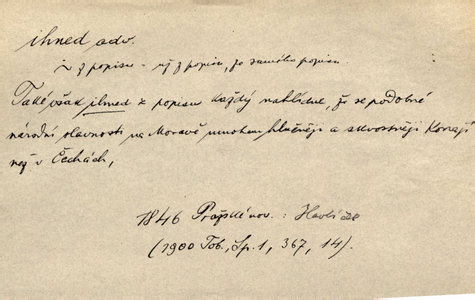 ihned adv.
~ z popisu - už z popisu, ze samého popisu.
Také však ihned z popisu každý nahlédne, že se podobné
národní slavnosti na Moravě mnohem hlučněji a skvostněji konají
než v Čechách,
1846 Pražské nov.: Havlíček
(1900 Tob., Sp. 1, 367, 14).